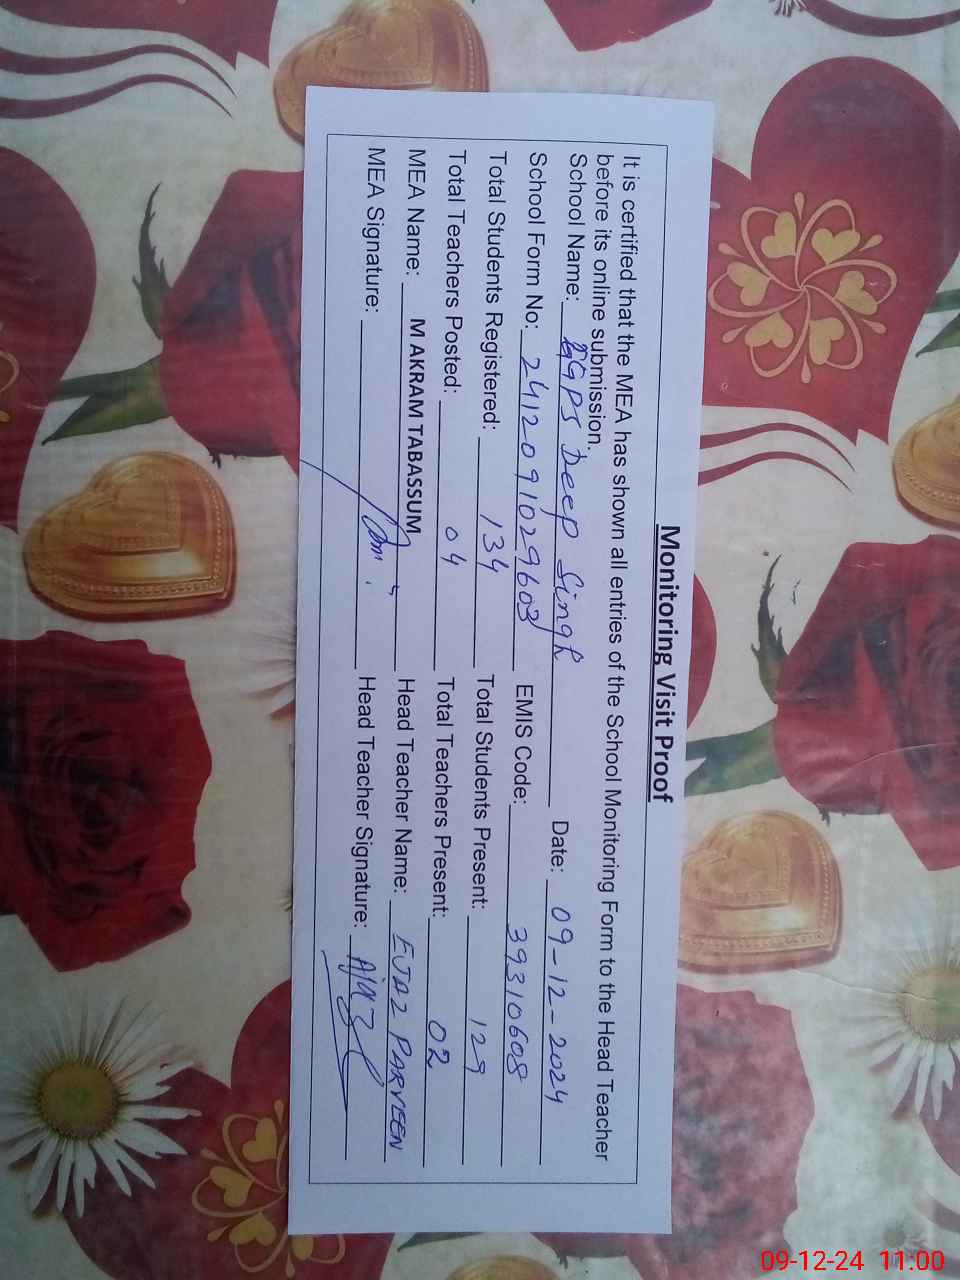 Monitoring Visit Proof
It is certified that the MEA has shown all entries of the School Monitoring Form to the Head Teacher
before its online submission.
School Name: GGPS Deep Singh Date: 09-12-2024
School Form No: 2412091029603 EMIS Code: 39310608
Total Students Registered: 134 Total Students Present: 129
Total Teachers Posted: 04 Total Teachers Present: 02
MEA Name: M AKRAM TABASSUM Head Teacher Name: EJAZ PARVEEN
MEA Signature: Head Teacher Signature: Ajaz
09-12-24 11:00